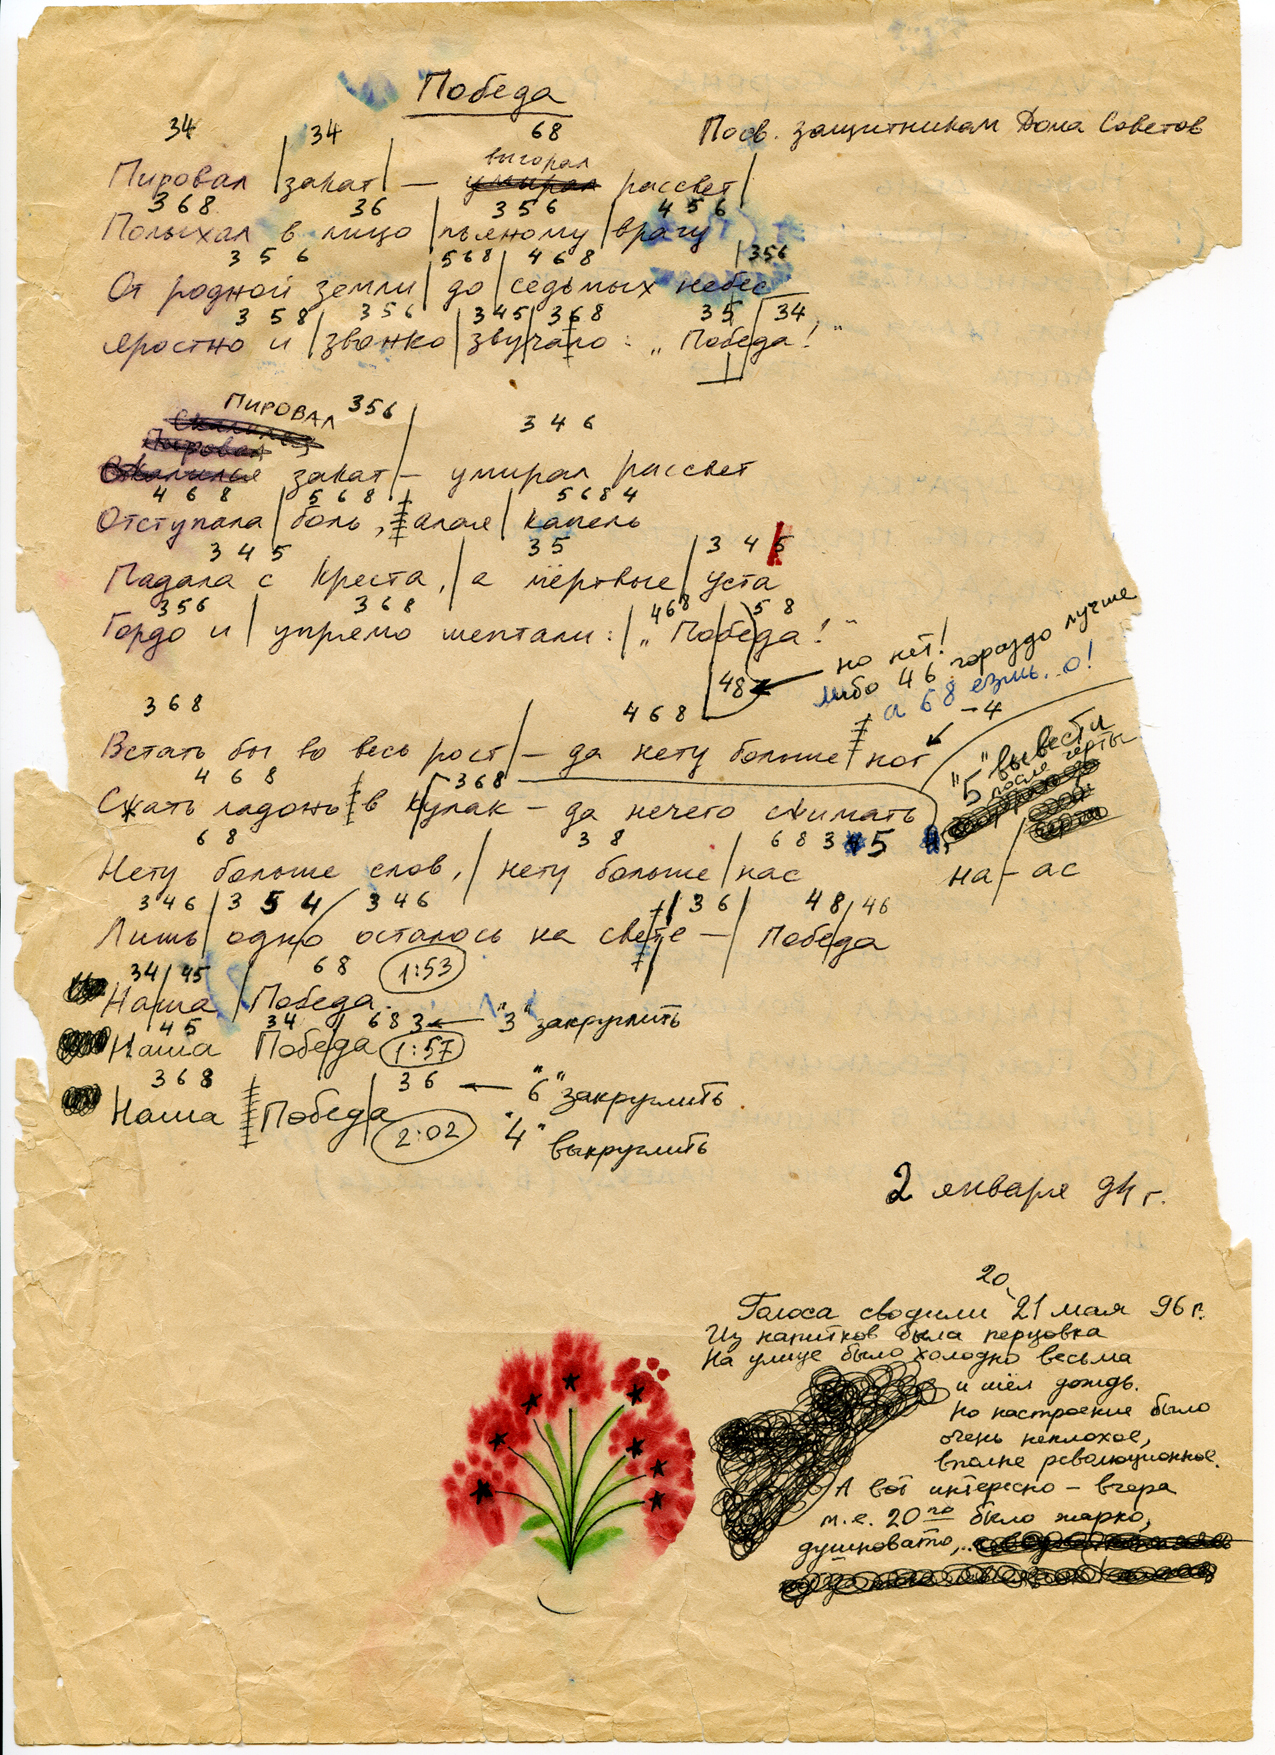 Победа
34 34 68 Посв. защитникам Дома Советов
выгорал
Пировал | закат | — умирал рассвет |
368 36 356 456
Полыхал в лицо | пьяному | врагу
356 568 468 356
От родной земли | до | седьмых небес
358 356 345 368 35 34
яростно и | звонко | звучало : „Победа!"
ПИРОВАЛ 356 346
Скалился
Пировал
Скалился закат | — умирал рассвет
468 568 5684
Отступала | боль, алая | капель
345 35 345
Падала с Креста, | а мёртвые | уста
356 368 468 58
Гордо и | упрямо шептали: | „Победа!"
48 ← но нет!
либо 46 гораздо лучше
а 68 езмь..о!
368 468 -4
Встать бы во весь рост | — да нету больше ног
"5" вывести
после черты
468 368
Сжать ладонь в кулак — да нечего сжимать
68 38 683 5
Нету больше слов, | нету больше | нас на-ас
346 354 346 36 48 46
Лишь | одно осталось на свете — | Победа
34 45 68 1:53
Наша | Победа.
45 34 683 ← "3" закруглить
Наша Победа 1:57
368 36 ← "6" закруглить
Наша Победа 2:02 "4" выкруглить
2 января 94 г.
20,
Голоса сводили 21 мая 96 г.
Из напитков была перцовка
На улице было холодно весьма
и шёл дождь.
Но настроение было
очень неплохое,
вполне революционное.
А вот интересно — вчера
т.е. 20го было жарко,
душновато,..